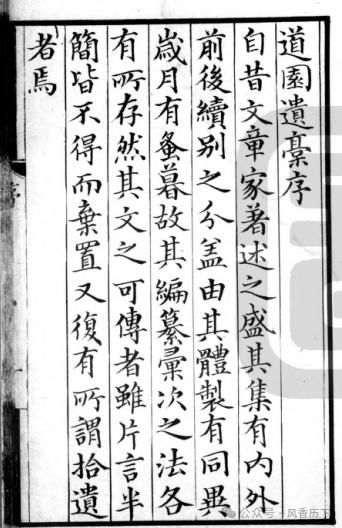 道園遺藁序
自昔文章家著述之盛其集有内外
前後續别之分盖由其體製有同異
歲月有蚤暮故其編纂彙次之法各
有所存然其文之可傳者雖片言半
簡皆不得而棄置又復有所謂拾遺
者焉
序
公众号·风香历下